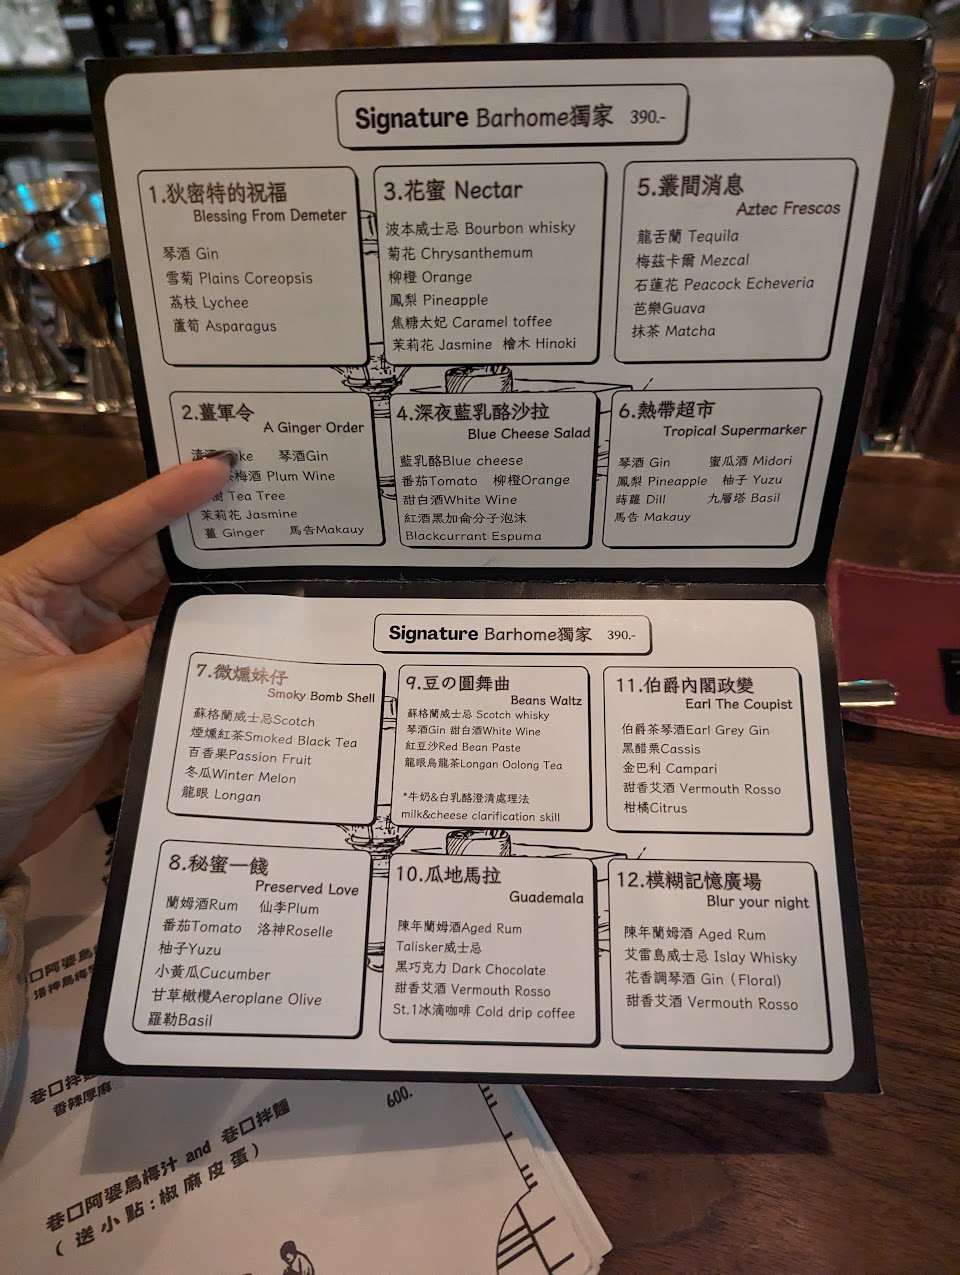 Signature Barhome獨家 390.-
1.狄密特的祝福
Blessing From Demeter
琴酒 Gin
雪菊 Plains Coreopsis
荔枝 Lychee
蘆筍 Asparagus
3.花蜜 Nectar
波本威士忌 Bourbon whisky
菊花 Chrysanthemum
柳橙 Orange
鳳梨 Pineapple
焦糖太妃 Caramel toffee
茉莉花 Jasmine 檜木 Hinoki
5.叢間消息
Aztec Frescos
龍舌蘭 Tequila
梅茲卡爾 Mezcal
石蓮花 Peacock Echeveria
芭樂Guava
抹茶 Matcha
2.薑軍令
A Ginger Order
清酒 ke 琴酒Gin
梅酒 Plum Wine
樹 Tea Tree
茉莉花 Jasmine
薑 Ginger 馬告Makauy
4.深夜藍乳酪沙拉
Blue Cheese Salad
藍乳酪Blue cheese
番茄Tomato 柳橙Orange
甜白酒White Wine
紅酒黑加侖分子泡沫
Blackcurrant Espuma
6.熱帶超市
Tropical Supermarker
琴酒 Gin 蜜瓜酒 Midori
鳳梨 Pineapple 柚子 Yuzu
蒔蘿 Dill 九層塔 Basil
馬告 Makauy
Signature Barhome獨家 390.-
7.微燻妹仔
Smoky Bomb Shell
蘇格蘭威士忌Scotch
煙燻紅茶Smoked Black Tea
百香果Passion Fruit
冬瓜Winter Melon
龍眼 Longan
9.豆の圓舞曲
Beans Waltz
蘇格蘭威士忌 Scotch whisky
琴酒Gin 甜白酒White Wine
紅豆沙Red Bean Paste
龍眼烏龍茶Longan Oolong Tea
*牛奶&白乳酪澄清處理法
milk&cheese clarification skill
11.伯爵內閣政變
Earl The Coupist
伯爵茶琴酒Earl Grey Gin
黑醋栗Cassis
金巴利 Campari
甜香艾酒 Vermouth Rosso
柑橘Citrus
8.秘蜜一餞
Preserved Love
蘭姆酒Rum 仙李Plum
番茄Tomato 洛神Roselle
柚子Yuzu
小黃瓜Cucumber
甘草橄欖Aeroplane Olive
羅勒Basil
10.瓜地馬拉
Guademala
陳年蘭姆酒Aged Rum
Talisker威士忌
黑巧克力 Dark Chocolate
甜香艾酒 Vermouth Rosso
St.1冰滴咖啡 Cold drip coffee
12.模糊記憶廣場
Blur your night
陳年蘭姆酒 Aged Rum
艾雷島威士忌 Islay Whisky
花香調琴酒 Gin (Floral)
甜香艾酒 Vermouth Rosso
巷口阿婆烏
洛神烏梅
巷口拌
香辣厚麻
600.
巷口阿婆烏梅汁 and 巷口拌麵
(送小點:椒麻皮蛋)